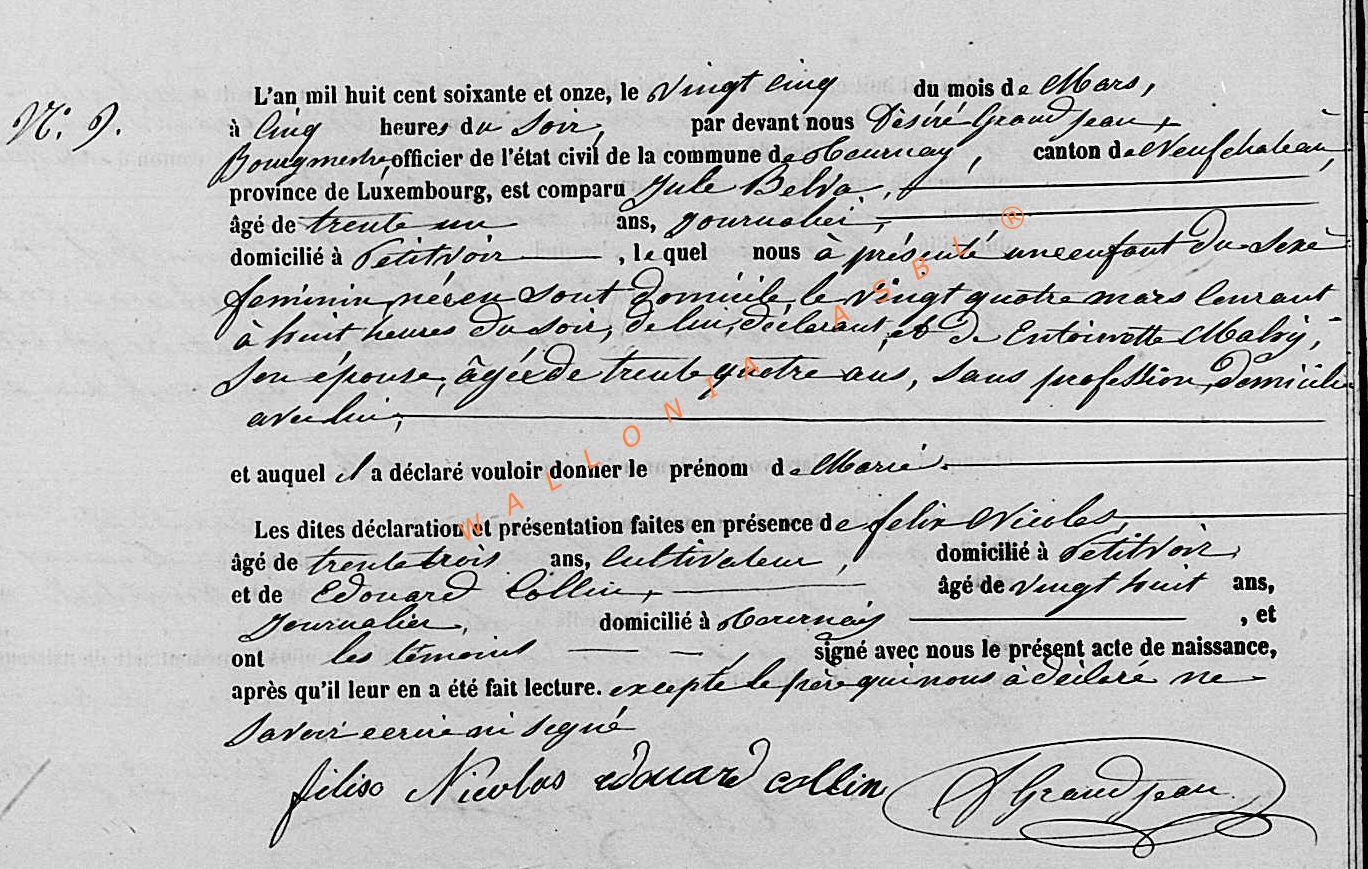 N°. 9.
L'an mil huit cent soixante et onze, le Vingt cinq du mois de Mars,
à Cinq heures du Soir, par devant nous Désiré Grandjean,
Bourgmestre, officier de l'état civil de la commune de Tournay, canton de Neufchateau,
province de Luxembourg, est comparu Jule Belva,
âgé de trente un ans, Journalier,
domicilié à Petitvoir, le quel nous à présenté une enfant du Sexe
feminin, née en sont domicile, le vingt quatre mars Courant
à huit heures du soir, de lui, déclarant, et de Entoinette
Son épouse, âgée de trente quatre ans, Sans profession, domicilie
avec lui,
et auquel il a déclaré vouloir donner le prénom de Marie.
Les dites déclaration et présentation faites en présence de felix Nicolas,
âgé de trente trois ans, Cultivateur, domicilié à Petitvoir,
et de Edouard Collin, âgé de vingt huit ans,
Journalier, domicilié à Tournay, et
ont les témoins signé avec nous le présent acte de naissance,
après qu'il leur en a été fait lecture. excepte le père qui nous à déclaré ne
Savoir ecrire ni signé
Nicolas edouard collin D Grandjean
WALLONIA ASBL ®